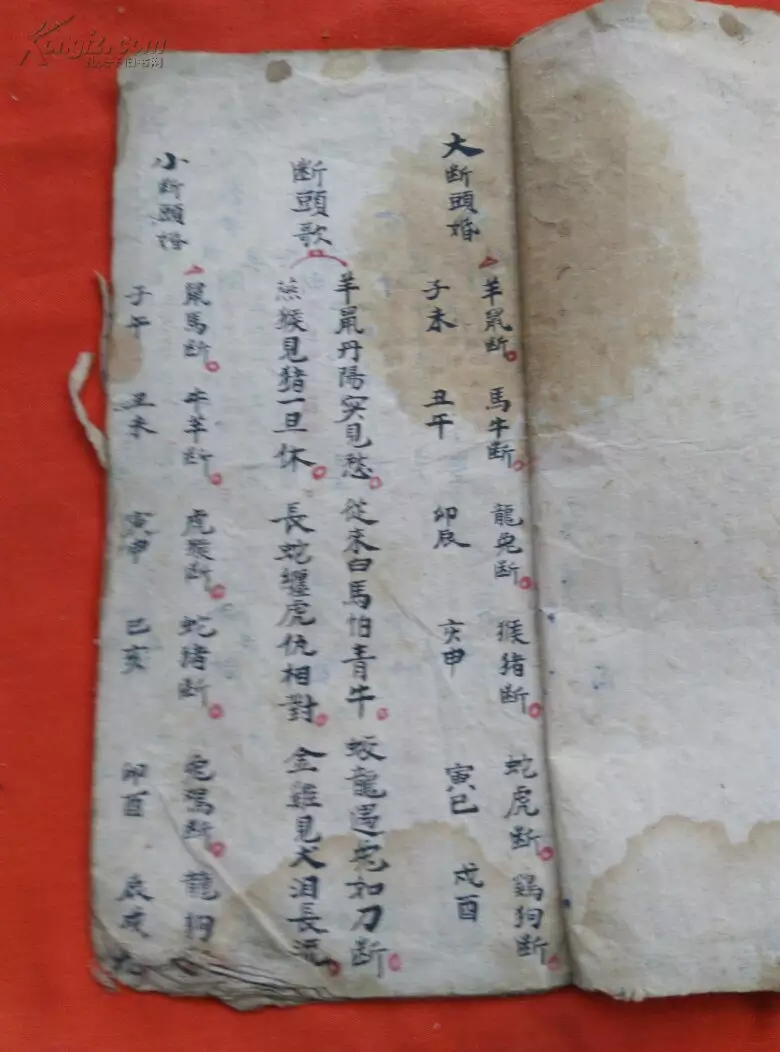 大断頭婚
羊鼠断 馬牛断 龍兔断 猴猪断 蛇虎断 鷄狗断
子未 丑午 卯辰 亥申 寅巳 戌酉
断頭歌
羊鼠丹陽实見愁 從来白馬怕青牛 蛟龍遇兔如刀断
猴見猪一旦休 長蛇纏虎仇相對 金雞見犬泪長流
小断頭婚
鼠馬断 牛羊断 虎猴断 蛇猪断 兔鷄断 龍狗
子午 丑未 寅申 巳亥 卯酉 辰戌
Kongfz.com
孔夫子旧书网